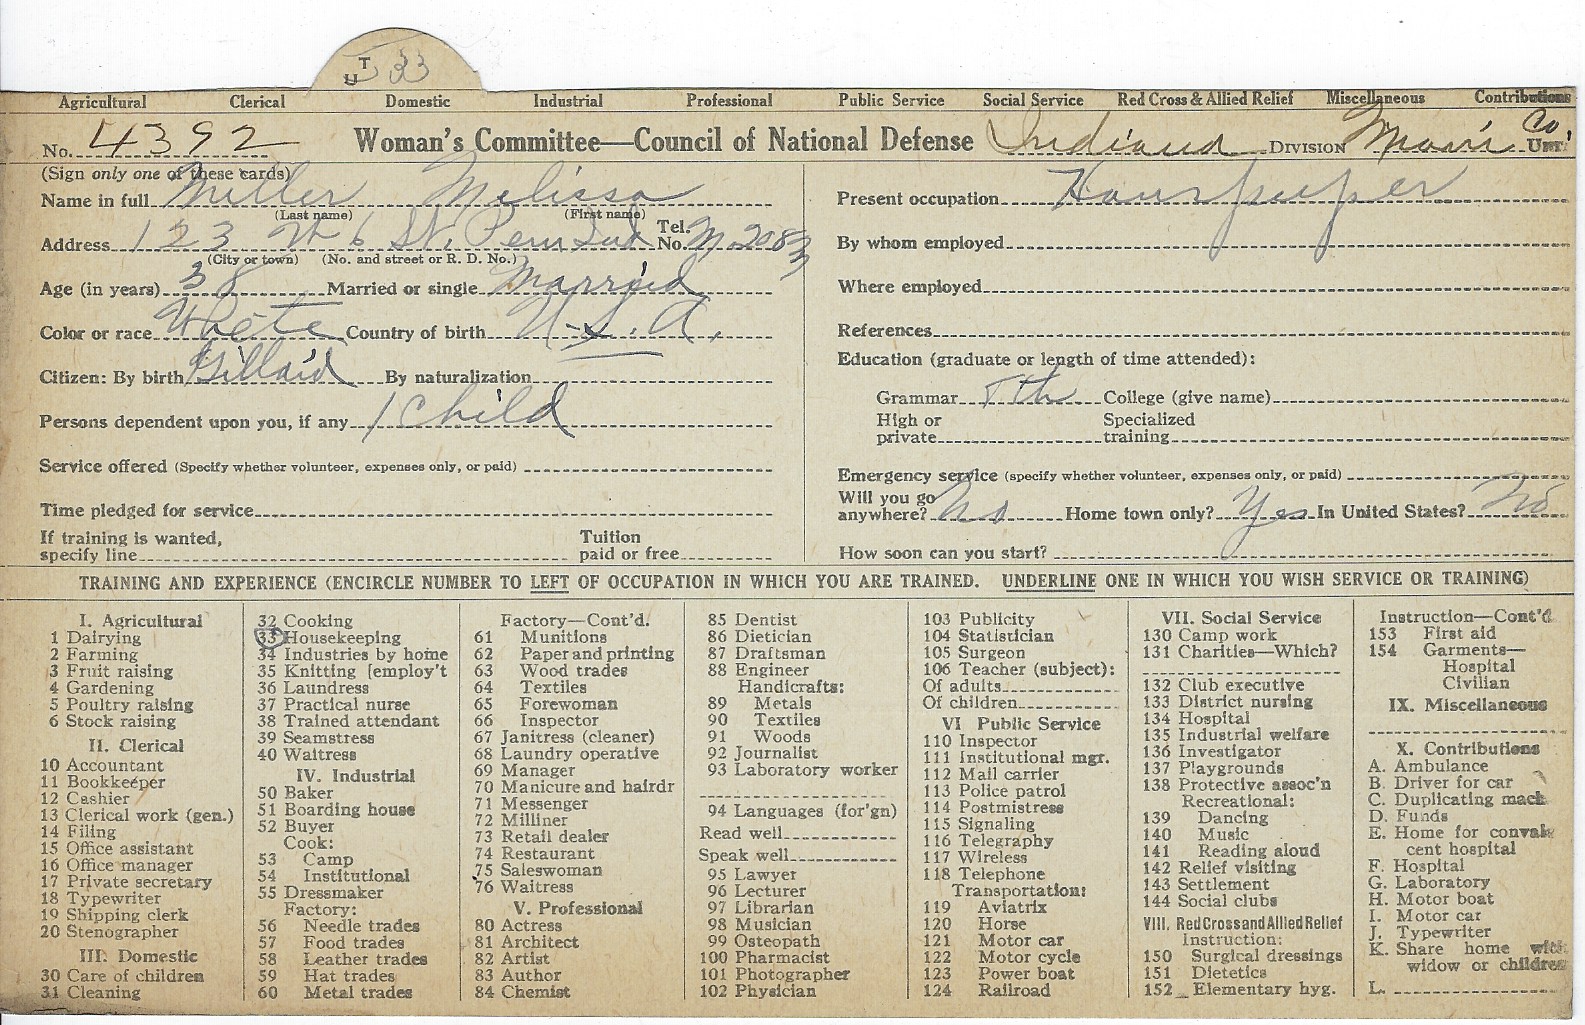 U T 33
Agricultural Clerical Domestic Industrial Professional Public Service Social Service Red Cross & Allied Relief Miscellaneous Contributions
No. 4392 Woman's Committee—Council of National Defense Indiana DIVISION Miami Co. UNIT
(Sign only one of these cards)
Name in full Miller Melissa
(Last name) (First name)
Address 123 W 6 St. Peru Ind Tel. No. M. 2083
(City or town) (No. and street or R. D. No.)
Age (in years) 38 Married or single Married
Color or race White Country of birth U.S.A.
Citizen: By birth By naturalization
Persons dependent upon you, if any 1 Child
Service offered (Specify whether volunteer, expenses only, or paid)
Time pledged for service
If training is wanted,
specify line Tuition paid or free
Present occupation
By whom employed
Where employed
References
Education (graduate or length of time attended):
Grammar th College (give name)
High or private Specialized training
Emergency service (specify whether volunteer, expenses only, or paid)
Will you go anywhere? No Home town only? Yes In United States? No
How soon can you start?
TRAINING AND EXPERIENCE (ENCIRCLE NUMBER TO LEFT OF OCCUPATION IN WHICH YOU ARE TRAINED. UNDERLINE ONE IN WHICH YOU WISH SERVICE OR TRAINING)
I. Agricultural
1 Dairying
2 Farming
3 Fruit raising
4 Gardening
5 Poultry raising
6 Stock raising
II. Clerical
10 Accountant
11 Bookkeeper
12 Cashier
13 Clerical work (gen.)
14 Filing
15 Office assistant
16 Office manager
17 Private secretary
18 Typewriter
19 Shipping clerk
20 Stenographer
III. Domestic
30 Care of children
31 Cleaning
32 Cooking
33 Housekeeping
34 Industries by home
35 Knitting [employ't
36 Laundress
37 Practical nurse
38 Trained attendant
39 Seamstress
40 Waitress
IV. Industrial
50 Baker
51 Boarding house
52 Buyer
Cook:
53 Camp
54 Institutional
55 Dressmaker
Factory:
56 Needle trades
57 Food trades
58 Leather trades
59 Hat trades
60 Metal trades
Factory—Cont'd.
61 Munitions
62 Paper and printing
63 Wood trades
64 Textiles
65 Forewoman
66 Inspector
67 Janitress (cleaner)
68 Laundry operative
69 Manager
70 Manicure and hairdr
71 Messenger
72 Milliner
73 Retail dealer
74 Restaurant
75 Saleswoman
76 Waitress
V. Professional
80 Actress
81 Architect
82 Artist
83 Author
84 Chemist
85 Dentist
86 Dietician
87 Draftsman
88 Engineer
Handicrafts:
89 Metals
90 Textiles
91 Woods
92 Journalist
93 Laboratory worker
94 Languages (for'gn)
Read well
Speak well
95 Lawyer
96 Lecturer
97 Librarian
98 Musician
99 Osteopath
100 Pharmacist
101 Photographer
102 Physician
103 Publicity
104 Statistician
105 Surgeon
106 Teacher (subject):
Of adults
Of children
VI Public Service
110 Inspector
111 Institutional mgr.
112 Mail carrier
113 Police patrol
114 Postmistress
115 Signaling
116 Telegraphy
117 Wireless
118 Telephone
Transportation:
119 Aviatrix
120 Horse
121 Motor car
122 Motor cycle
123 Power boat
124 Railroad
VII. Social Service
130 Camp work
131 Charities—Which?
132 Club executive
133 District nursing
134 Hospital
135 Industrial welfare
136 Investigator
137 Playgrounds
138 Protective assoc'n
Recreational:
139 Dancing
140 Music
141 Reading aloud
142 Relief visiting
143 Settlement
144 Social clubs
VIII. Red Cross and Allied Relief
Instruction:
150 Surgical dressings
151 Dietetics
152 Elementary hyg.
Instruction—Cont'd
153 First aid
154 Garments—
Hospital
Civilian
IX. Miscellaneous
X. Contributions
A. Ambulance
B. Driver for car
C. Duplicating mach
D. Funds
E. Home for convales
cent hospital
F. Hospital
G. Laboratory
H. Motor boat
I. Motor car
J. Typewriter
K. Share home with
widow or children
L.